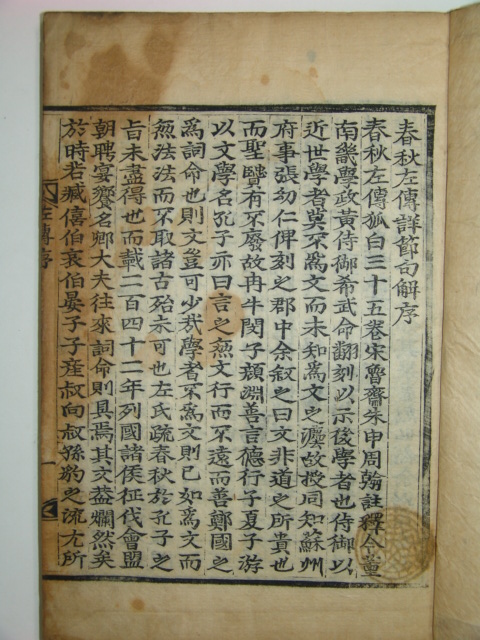 春秋左傳詳節句解序
春秋左傳狐白三十五卷宋魯齋朱申周翰註釋今董
南畿學政黃侍御希武命翻刻以示後學者也侍御以
近世學者莫不爲文而未知爲文之灋故授同知蘇州
府事張幼仁俾刻之郡中余敘之曰文非道之所貴也
而聖賢有不廢故冉牛閔子顔淵善言德行子夏子游
以文學名孔子亦曰言之無文行而不遠而善鄭國之
爲詞命也則文豈可少哉學者不爲文則已如爲文而
無法法而不取諸古殆未可也左氏疏春秋於孔子之
旨未盡得也而載二百四十二年列國諸侯征伐會盟
朝聘宴饗名卿大夫往來詞命則具焉其文蓋爛然矣
於時若臧僖伯哀伯晏子子産叔向叔孫豹之流尤所
左傳序
一